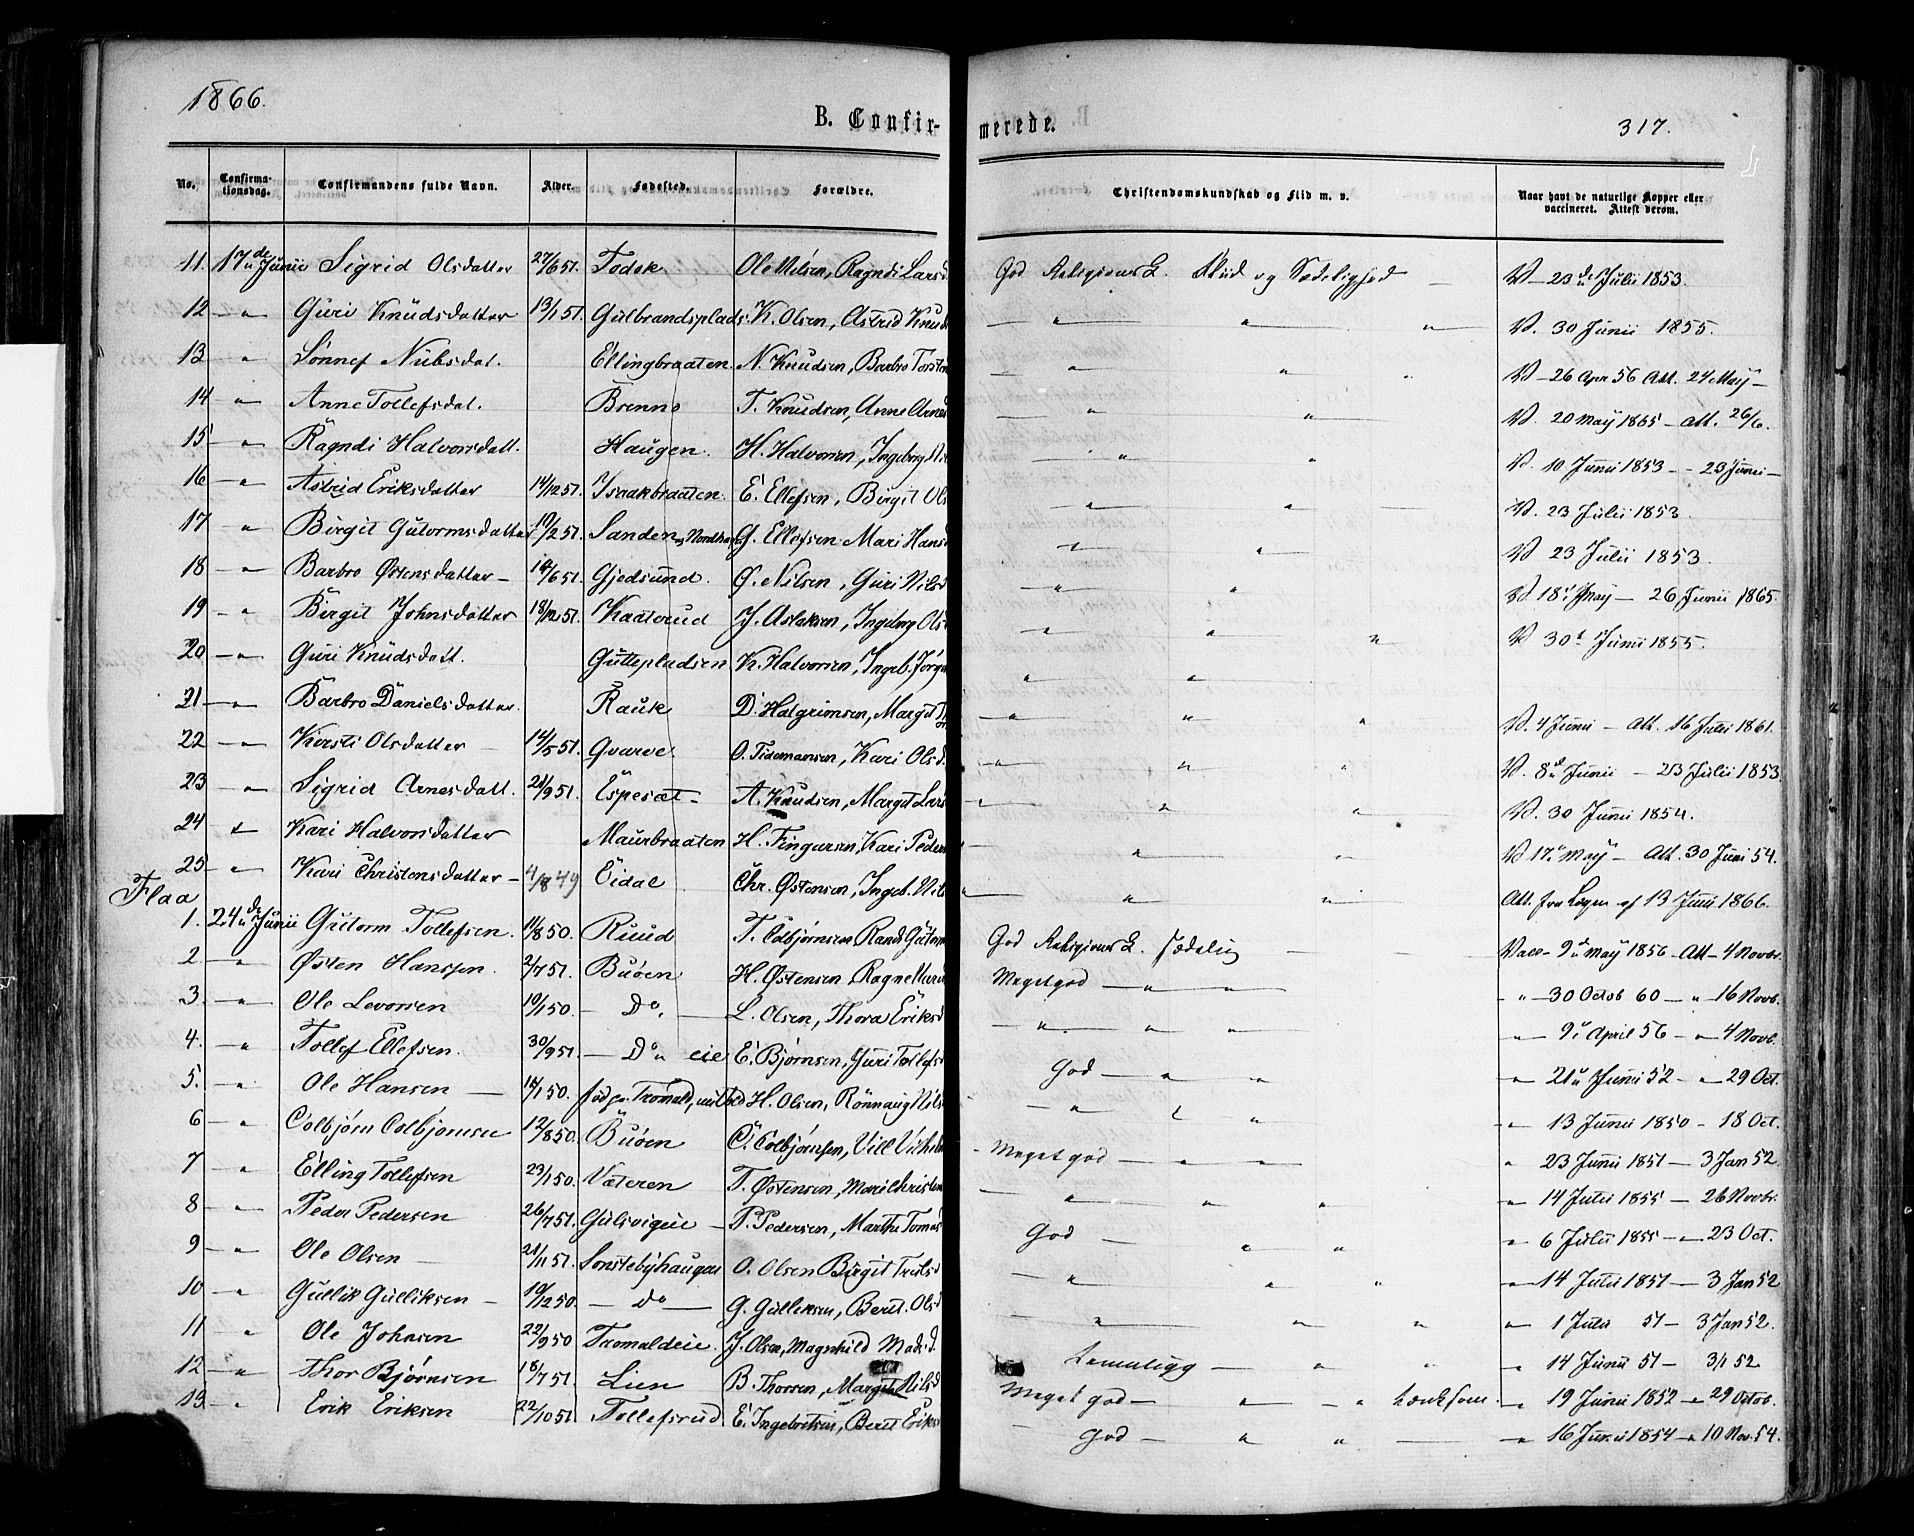 1866.
B. Confir-
merede.
317.
No. Confirma-tionsdag. Confirmandens fulde Navn. Alder. Fødested. Forældre. Christendomskundskab og Flid m. v. Naar havt de naturlige Kopper eller vaccineret. Attest derom.
11. 17de Junii Sigrid Olsdatter 27/6 51. Ole Nilsen, Ragndi Larsd God Religions Flid og Sædelighed V - 23de Julii 1853.
12 - " - Guri Knudsdatter 13/1 51. Gulbrandsplads. K. Olsen, Astrid Knuds - " - " - " V. 30 Junii 1855.
13 - " Sønnef Nubsdat. Ellingbraaten. N. Knudsen, Barbro Torsten - " " " V - 26 Apr 56 Att. 24 May -
14 " Anne Tollefsdat. Brenno T. Knudsen, Anne Arnes - " " V. 20 May 1865 - Att. 26/6.
15 - " - Ragndi Halvorsdatt. Haugen. H. Halvorsen, Ingeborg Nil " " V. 10 Junii 1853 - - 23 Junii -
16 - " - Astrid Eriksdatter 14/12 51. Isaakbraaten. E. Ellefsen, Birgit Ols - " " V. 23 Julii 1853.
17 " Birgit Gutormsdatter 19/2 51. Sanden G. Ellefsen Mari Hansd - " " V 23 Julii 1853.
18 - " - Barbro Østensdatter - 14/6 51. Gjedsund. Ø. Nilsen, Guri Nilsd - " " V 18 May - 26 Junii 1865.
19 - " - Birgit Johnsdatter 18/12 51. Kaaterud J. Aslaksen, Ingeborg Ols - " " " V 30t Junii 1855.
20 - " - Guri Knudsdatt. Guttepladsen K. Halvorsen, Ingeb. Jørg " "
21 - " - Barbro Danielsdatter. Rauk D. Halgrimsen, Margit - " " " V. 4 Junii - Att. 16 Julii 1861.
22 - " - Kirsti Olsdatter - 14/5 51. Qvarve O. Tidemansen, Kari Olsd. - " " " V. 8de Junii - 23 Julii 1853
23 - " Sigrid Arnesdatt. 21/9 51. Espesæt - A. Knudsen, Margit Lars " " " V. 30 Junii 1854.
24 - Kari Halvorsdatter Maurbraaten H. Fingarsen, Kari Peders " " V 17 May - Att. 30 Juni 54.
25 - " Kari Christensdatter - 4/8 49 Eidal Chr. Østensen, Ingeb. Nils " " Att. fra Lægen af 13 Juni 1866.
Flaa
1. 24de Junii Gutorm Tollefsen. 11/8 50. Ruud T. Colbjørnsen Rand Gutorm God Religions Sædelig Vacc - 9 May 1856 - Att - 4 Novbr.
2 - " Østen Hanssen. 2/7 51. Buøen H. Østensen, Ragne Meget god - " - " - " - 30 Octob 60 - " 16 Novb.
3. - " Ole Levorsen 10/1 50. - Do. - L. Olsen, Thora Eriks - " " " - " 9 April 56 - " - 4 Novb.
4. - " Tollef Ellefsen. 30/9 51. - Do eie E. Bjørnsen, Guri Tollefs God - " " " 21 Junii 52 - " 29 Oct.
5. - " Ole Hansen - 11/1 50. H. Olsen, Rønnaug Nils - " " " - " - 13 Junii 1850 - 18 Oct.
6 - " Colbjørn Colbjørnsen 12/8 50. Buøen C. Colbjørnsen, Vill Meget god - " - " - " 23 Junii 1851 - 3 Jan 52.
7 - " Elling Tollefsen 23/1 50. Væteren T. Østensen, Mari Christen " " " " - 14 Julii 1855 - 26 Novbr.
8 - " Peder Pedersen 26/7 51. Gulsvigeie - P. Pedersen, Marthe Tomas God - " " " 6 Julii 1855 - " 23 Oct.
9 - " Ole Olsen - 21/11 51. Sonstebyhaugen O. Olsen Birgit - " " " - " - 14 Julii 1851 - 3 Jan 52
10 - " Gullik Gulliksen - 19/12 50. - Do - G. Gulleksen, Berit. Olsd " " " " 1 Julii 51 - 3 Jan 52.
11 " Ole Johnsen 22/9 50 Tromaldeie. J. Olsen, Magnhild Mads.d. temmelig - " " " 14 Junii 51 - 3/1 52.
12 - " Thor Bjørnsen 18/7 51. Lien B. Thorsen, Margit Nilsd Meget god - " - " tænksom. " - 19 Junii 1852 - " 29 Octob.
13. " Erik Eriksen 22/10 51. Tollefsrud E. Ingebretsen, Berit Eriks God - " " " 16 Junii 1854 - " 10 Nov. 54.